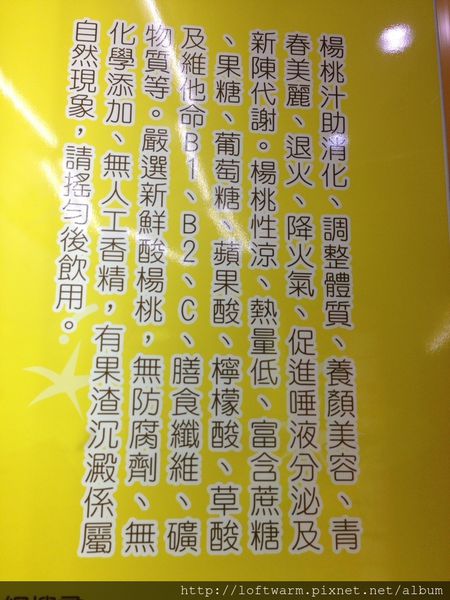 楊桃汁助消化、調整體質、養顏美容、青
春美麗、退火、降火氣、促進唾液分泌及
新陳代謝。楊桃性涼、熱量低、富含蔗糖
、果糖、葡萄糖、蘋果酸、檸檬酸、草酸
及維他命B1、B2、C、膳食纖維、礦
物質等。嚴選新鮮酸楊桃，無防腐劑、無
化學添加、無人工香精，有果渣沉澱係屬
自然現象，請搖勻後飲用。
http://loftwarm.pixnet.net/album